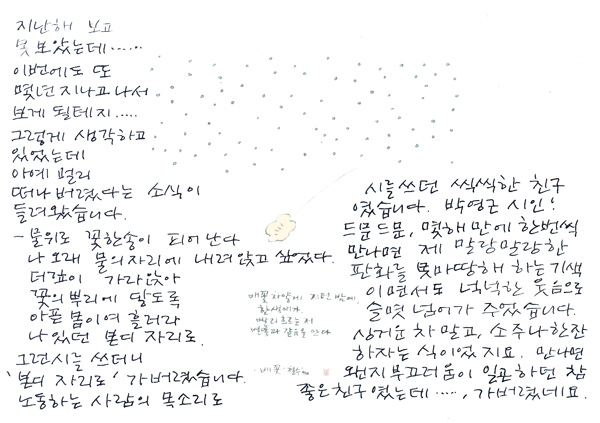 지난해 보고
못 보았는데......
이번에도 또
몇년 지나고 나서
보게 될테지.....
그렇게 생각하고
있었는데
아예 멀리
떠나 버렸다는 소식이
들려왔습니다.
- 물위로 꽃한송이 피어 난다
나 오래 물의 자리에 내려앉고 싶었다.
더깊이 가라앉아
꽃의 뿌리에 닿도록
아픈 몸이여 흘러라
나 있던 본디 자리로.
그런시를 쓰더니
'본디 자리로' 가버렸습니다.
노동하는 사람의 목소리로
시를 쓰던 씩씩한 친구
였습니다. 박영근 시인!
드문 드문, 몇해 만에 한번씩
만나면 제 말랑말랑한
판화를 못마땅해 하는 기색
이면서도 넉넉한 웃음으로
슬몃 넘어가 주었습니다.
싱거운 차 말고, 소주나 한잔
하자는 식이었지요. 만나면
왠지 부끄러움이 일곤 하던 참
좋은 친구였는데...., 가버렸네요.
배꽃 하얗게 지던 밤에